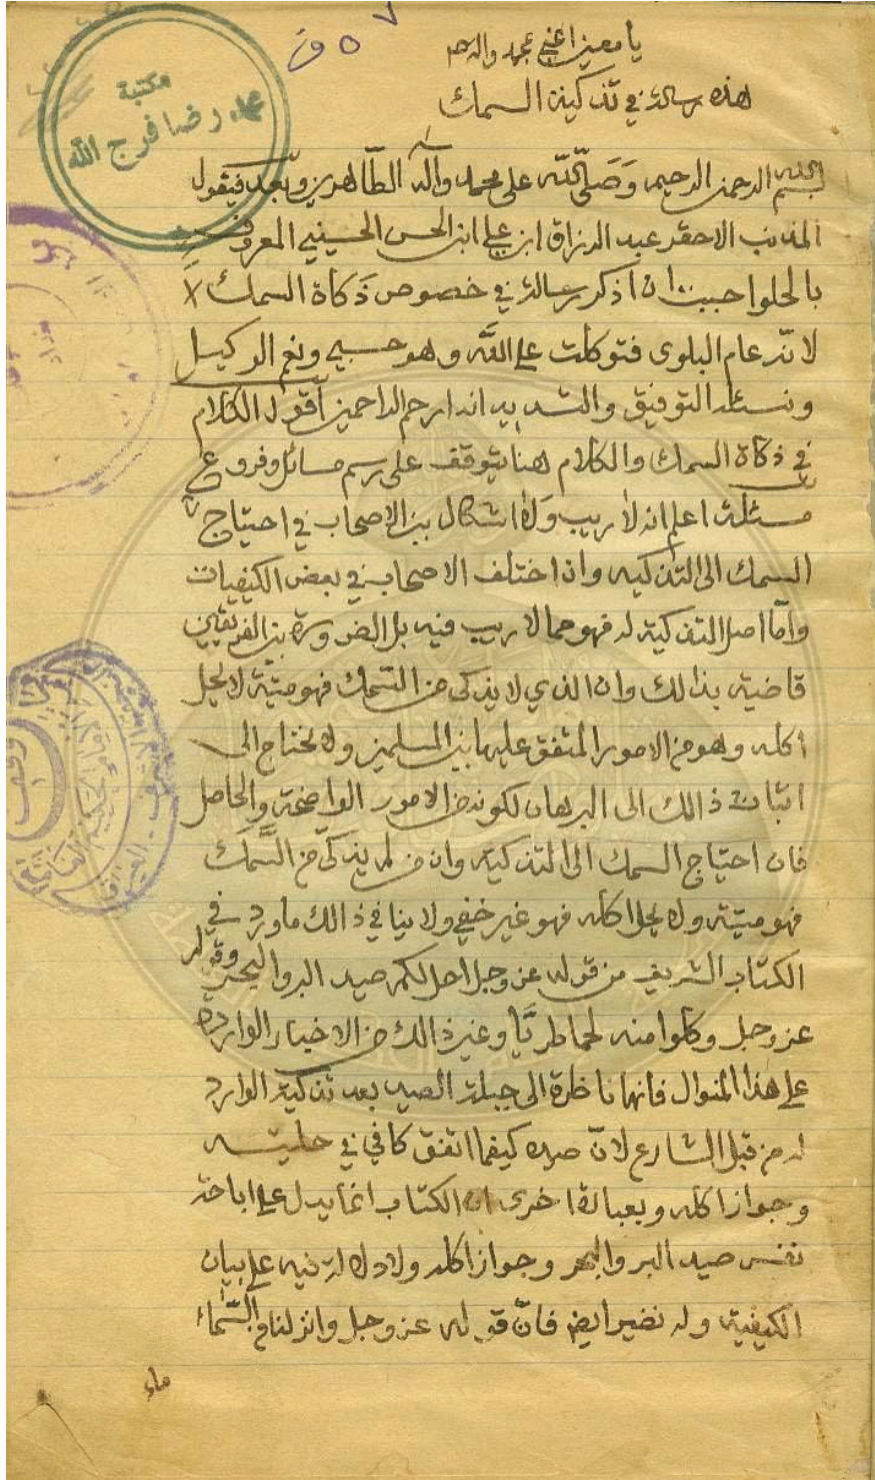 ٥٧ ق
يا معين اعني بمحمد واله
هذه رسالة في تذكية السمك
مكتبة
محمد رضا فرج الله
بسم الله الرحمن الرحيم وَصَلّى اللّه على محمد وآله الطّاهرين وبعد فيقول
المذنب الاحقر عبد الرزاق ابن علي ابن الحسن الحسيني المعروف
بالحلو احببت ان اذكر رسالة في خصوص ذَكاة السمك
لانّه عام البلوى فتوكلت على اللّه وهو حسبي ونعم الوكيل
ونسئله التوفيق والتسديد انه ارحم الراحمين أقول الكلام
في ذكاة السمك والكلام هنا يتوقف على رسم مسائل وفروع
مسئلة اعلم انه لا ريب وَلا اشكال بين الاصحاب في احتياج
السمك الى التذكيه وان اختلف الاصحاب في بعض الكيفيات
وامّا اصل التذكية له فهو مما لا ريب فيه بل الضرورة بين الفريقين
قاضية بذالك وان الذي لا يذكى من السّمك فهو ميّتة لا يحل
اكله وهو من الامور المتفق عليها بين المسلمين ولا يحتاج الى
اثبات ذالك الى البرهان لكونه من الامور الواضحة والحاصل
فان احتياج السمك الى التذكية وان من لم يذكّى من السَّمَك
فهو ميّته ولا يحل اكله فهو غير خفي ولا ينافي ذالك ما ورد في
الكتاب الشريف من قوله عز وجل احل لكم صيد البر والبحر وقوله
عز وجل وكلوا منه لحما طريّا وغير ذالك من الاخبار الوارده
على هذا المنوال فانها ناظرة الى حلية الصيد بعد تذكية الوارد
له من قبل الشارع لانّ صيده كيفما اتفق كافي في حليته
وجواز اكله وبعبارة اخرى ان الكتاب انما يدل على اباحة
نفس صيد البر والبحر وجواز اكله ولا دلالة فيه على بيان
الكيفية وله نضير ايضا فانّ قوله عز وجل وانزلنا من السّماء
ماء